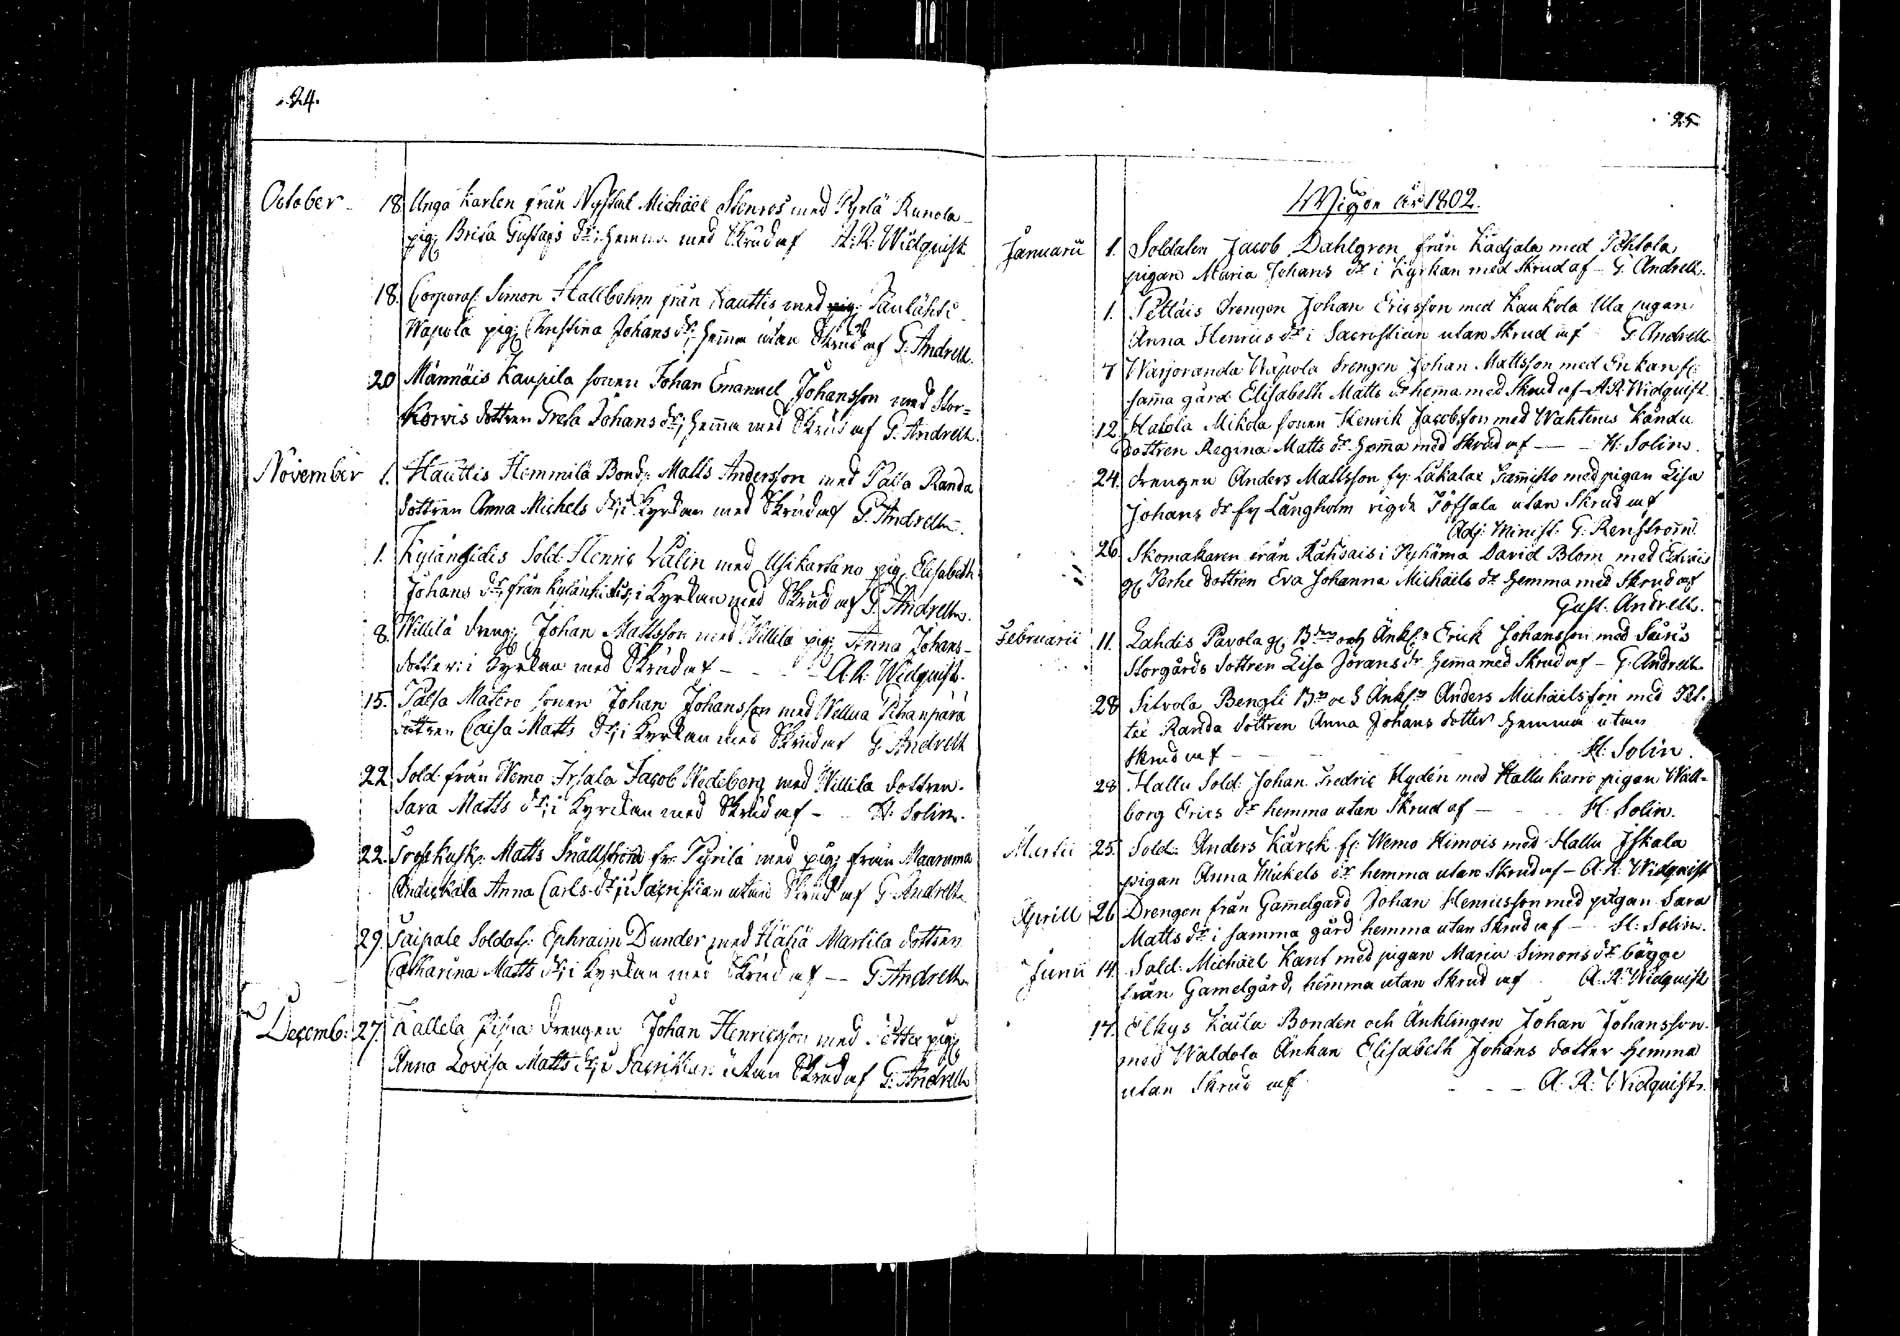 24.
October 18. Unga Karlen från Nystad Michäel Stenros med Pyrlä Runola
pig: Brita Gustafs dr; hemma med Skrud af A: R: Widquist
18. Corporal Simon Hallbohm från Kauttis med Taulähti
Wapola pig; Christina Johans dr; hemma utan Skrud af G. Andrell.
20 Männäis Kaupila sonen Johan Emanuel Johansson med Stor=
Korvis dottren Greta Johans dr; hemma med Skrud af G. Andrell.
November 1. Hauttis Hemmilä Bond: Matts Andersson med Randa
dottren Anna Michels dr; i Kyrkan med Skrud af G. Andrelln.
1. Sold: Henric Wälin med Usikartano pig: Elisabeth
Johans dr; från i Kyrkan med Skrud af G. Andrelln.
8. Willilä dreng: Johan Mattsson med Willilä pig; Anna Johans-
dotter: i Kyrkan med Skrud af - A: R: Widquist.
15. sonen Johan Johansson med Wellua
dottren Caisa Matts dr; i Kyrkan med Skrud af G. Andrell
22 Sold: från Wemo Jrjala Jacob Wedeberg med Willila dottren
Sara Matts dr; i Kyrckan med Skrud af - H: Solin.
22. Kusk: Matts Snällström fr: Pyrilä med pig; från Maarama
Anna Carls dr; i Sacristian utan Skrud af G. Andrelln
29. Saipale Soldat: Ephraim Dunder med Häljä Martila dottren
Catharina Matts dr; i Kyrkan med Skrud af -- G. Andrelln
Decemb: 27. Kallela drengen Johan Henricsson med pig;
Anna Lovisa Matts dr; i Sacristian utan Skrud af G. Andrelln
25
Wigde År 1802.
Januarii 1. Soldaten Jacob Dahlgren från Kadjala med Pohtola
pigan Maria Johans dr i Kyrkan med Skrud af - G. Andrelln.
1. Pettäis drengen Johan Ericsson med Kaukola Ula pigan
Anna Henrics dr i Sacristian utan Skrud af G. Andrelln
7 Warjoranda Wapola drengen Johan Mattsson med Enkan fr:
sama gård Elisabeth Matts dr hema med Skrud af - A. R. Widquist.
12. Mikola sonen Henrik Jacobsson med Kändu
dottren Regina Matts dr hema med Skrud af - - H: Solin.
24. drengen Anders Mattsson fr: Lakalax Gamisto med pigan Lisa
Johans dr fr Långholm vigde Jöfsala utan Skrud af
Adj: Minist: G. Renström.
26. Skomakaren från i Pyhäma David Blom med
dottren Eva Johanna Michäels dr hemma med Skrud af
Gust. Andrelln.
Februarii 11. Lahdis Pavola Bden och Änkl: Erick Johansson med
Storgårds dottren Lisa Jörans dr hema med Skrud af - G. Andrelln
28 Silvola Bengli Bn och Änkl: Anders Michaelsson med
Randa dottren Anna Johans dotter hemma utan
skrud af - - H: Solin.
28 Hallu Sold: Johan Fredric Hydén med Hallu Karro pigan Wall-
borg Erics dr hemma utan Skrud af - H: Solin.
Martii 25. Sold: Anders Kärck fr: Wemo Himois med Hallu Iskala
pigan Anna Mickels dr hemma utan Skrud af - A. R. Widquist
Aprill 26 Drengen från Gamelgård Johan Henricsson med pigan Sara
Matts dr i samma gård hemma utan Skrud af - H: Solin.
Junii 14. Sold: Michäel Kant med pigan Maria Simons dr bägge
från Gamelgård, hemma utan Skrud af A. R. Widquist
17. Elkys Kaila Bonden och Änklingen Johan Johansson
med Waldola Änkan Elisabeth Johans dotter hemma
utan Skrud af - - - A. R: Widquist.